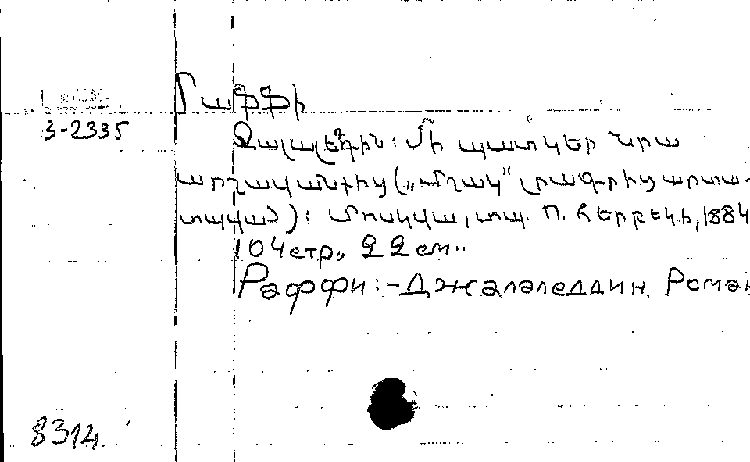 Րաֆֆի
3-2335
Ջալալեդին: Մի պատկեր նրա
արշավանքից („Մշակ“ լրագրից արտա-
տպված): Մոսկվա, տպ. Ո. Հերբեկի, 1884
104 стр., 22 см..
Раффи:-Джалаледдин. Роман
8314.